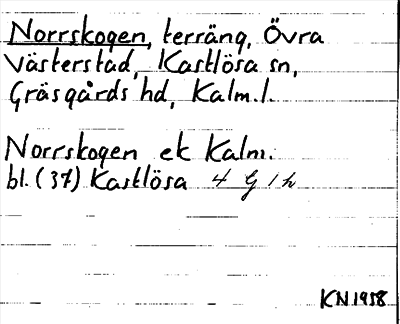 Norrskogen, terräng, Övra
Västerstad, Kastlösa sn,
Gräsgårds hd, Kalm.l.
Norrskogen ek Kalm.
bl. (37) Kastlösa 4 G 1 h
KN1958